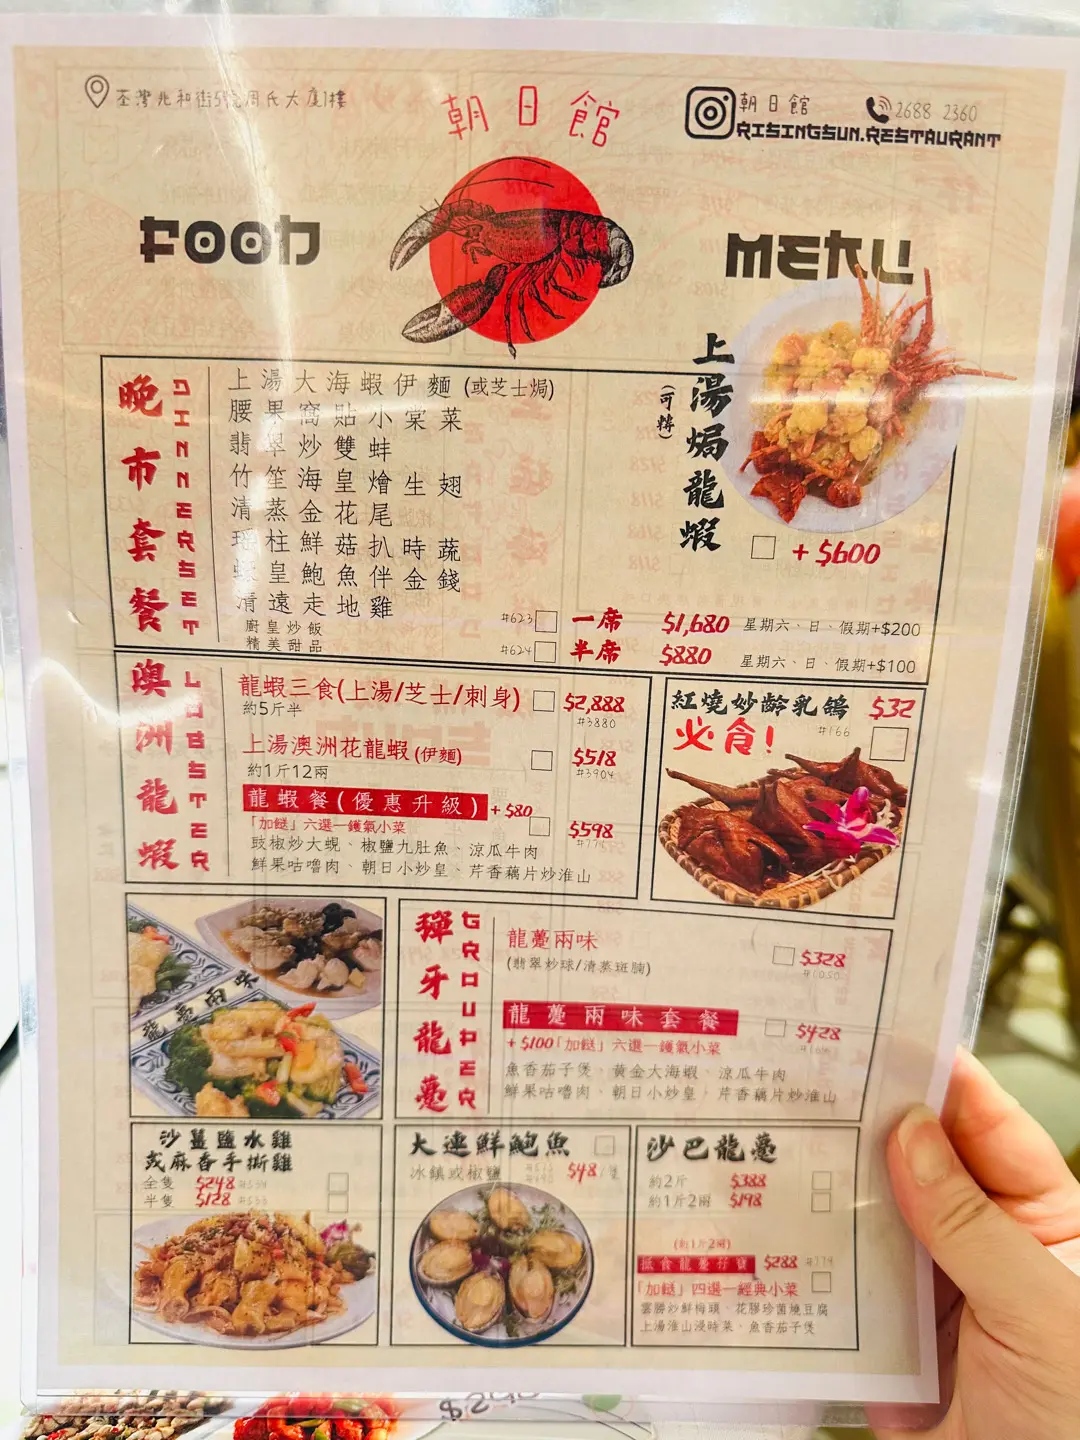 荃灣兆和街
大廈1樓
朝日館
朝日館
2688 2360
RISINGSUN.RESTAURANT
FOOD
MENU
晚市套餐
DINNERSET
上湯大海蝦伊麵 (或芝士焗)
腰果窩貼小棠菜
翡翠炒雙蚌
竹笙海皇燴生翅
清蒸金花尾
瑤柱鮮菇扒時蔬
皇鮑魚伴金錢
清遠走地雞
廚皇炒飯
精美甜品
上湯焗龍蝦
(可轉)
+ $600
#623 一席 $1,680 星期六、日、假期+$200
#624 半席 $880 星期六、日、假期+$100
澳洲龍蝦
LOBSTER
龍蝦三食(上湯/芝士/刺身) $2,888
約5斤半 #3880
上湯澳洲花龍蝦 (伊麵) $518
約1斤12兩 #3904
龍蝦餐(優惠升級) + $80 $598
「加餸」六選一鑊氣小菜
豉椒炒大蜆、椒鹽九肚魚、涼瓜牛肉
鮮果咕嚕肉、朝日小炒皇、芹香藕片炒淮山
紅燒妙齡乳鴿 $32
#166
必食!
龍躉兩味
彈牙龍躉
GROUPER
龍躉兩味 $328
(翡翠炒球/清蒸斑腩)
龍躉兩味套餐 $428
+ $100「加餸」六選一鑊氣小菜
魚香茄子煲、黃金大海蝦、涼瓜牛肉
鮮果咕嚕肉、朝日小炒皇、芹香藕片炒淮山
沙薑鹽水雞
或麻香手撕雞
全隻 $248
半隻 $128
大連鮮鮑魚
冰鎮或椒鹽 $48/隻
沙巴龍躉
約2斤 $388
約1斤2兩 $198
(約1斤2兩)
$288 #779
「加餸」四選一經典小菜
雲勝炒鮮梅頭、花膠珍菌燒豆腐
上湯淮山浸時菜、魚香茄子煲